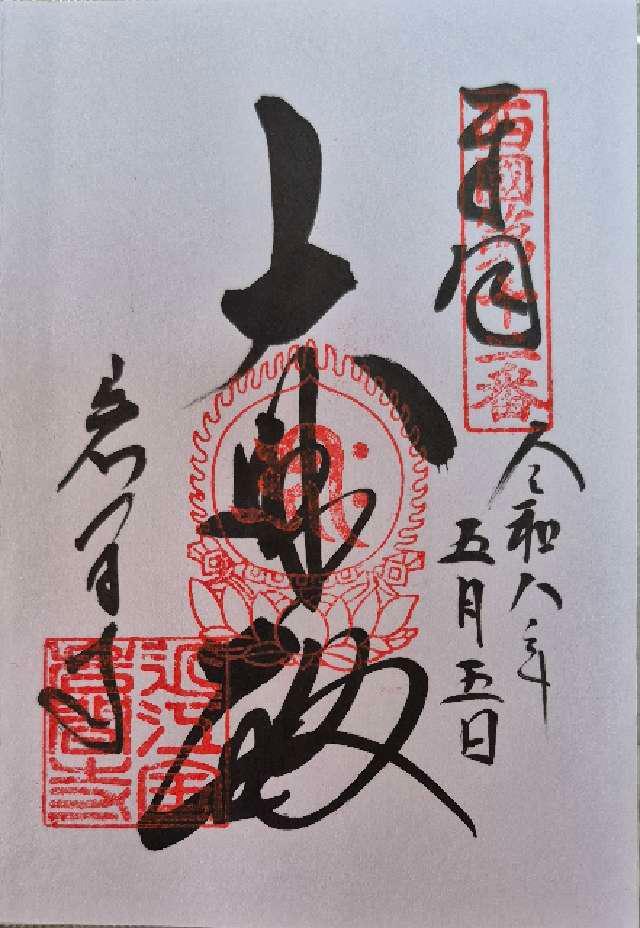 奉拝
西國第十二番
令和八年
五月五日
大悲殿
岩间寺
近江国
岩間寺